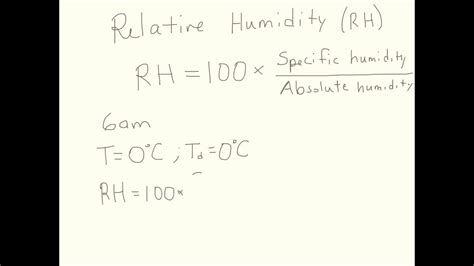 Relative Humidity (RH)
RH = 100 × Specific humidity / Absolute humidity
6am
T = 0°C ; Td = 0°C
RH = 100×